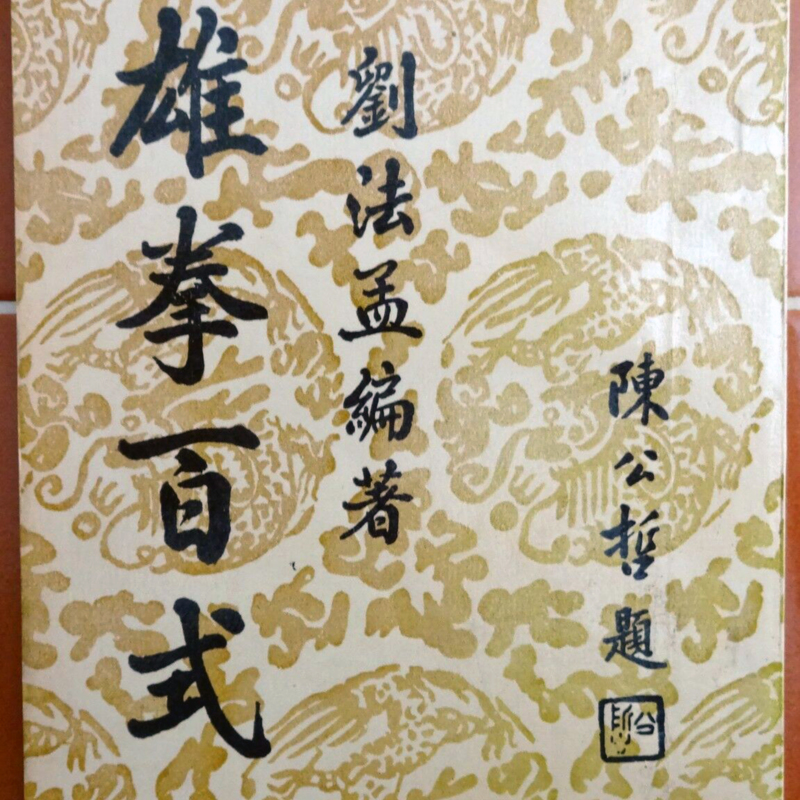 陳公哲題
劉法孟編著
雄拳百式